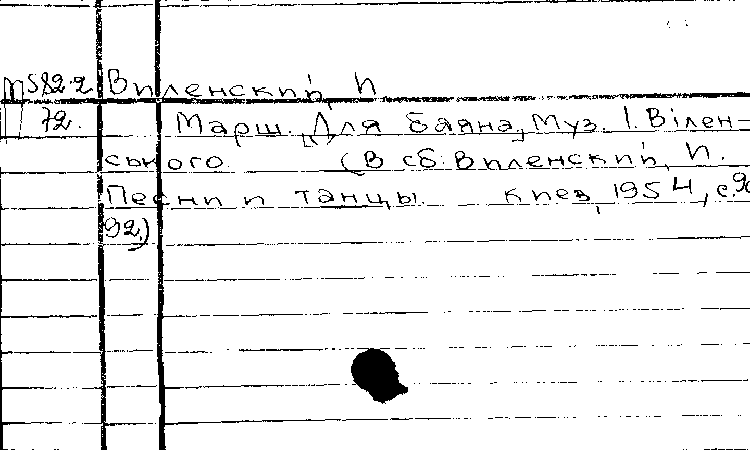 М582.2 Виленский, И.
72. Марш. [Для баяна, Муз. І. Вілен-
ського. (В сб: Виленский, И.
Песни и танцы. Киев, 1954, с.90
92.)